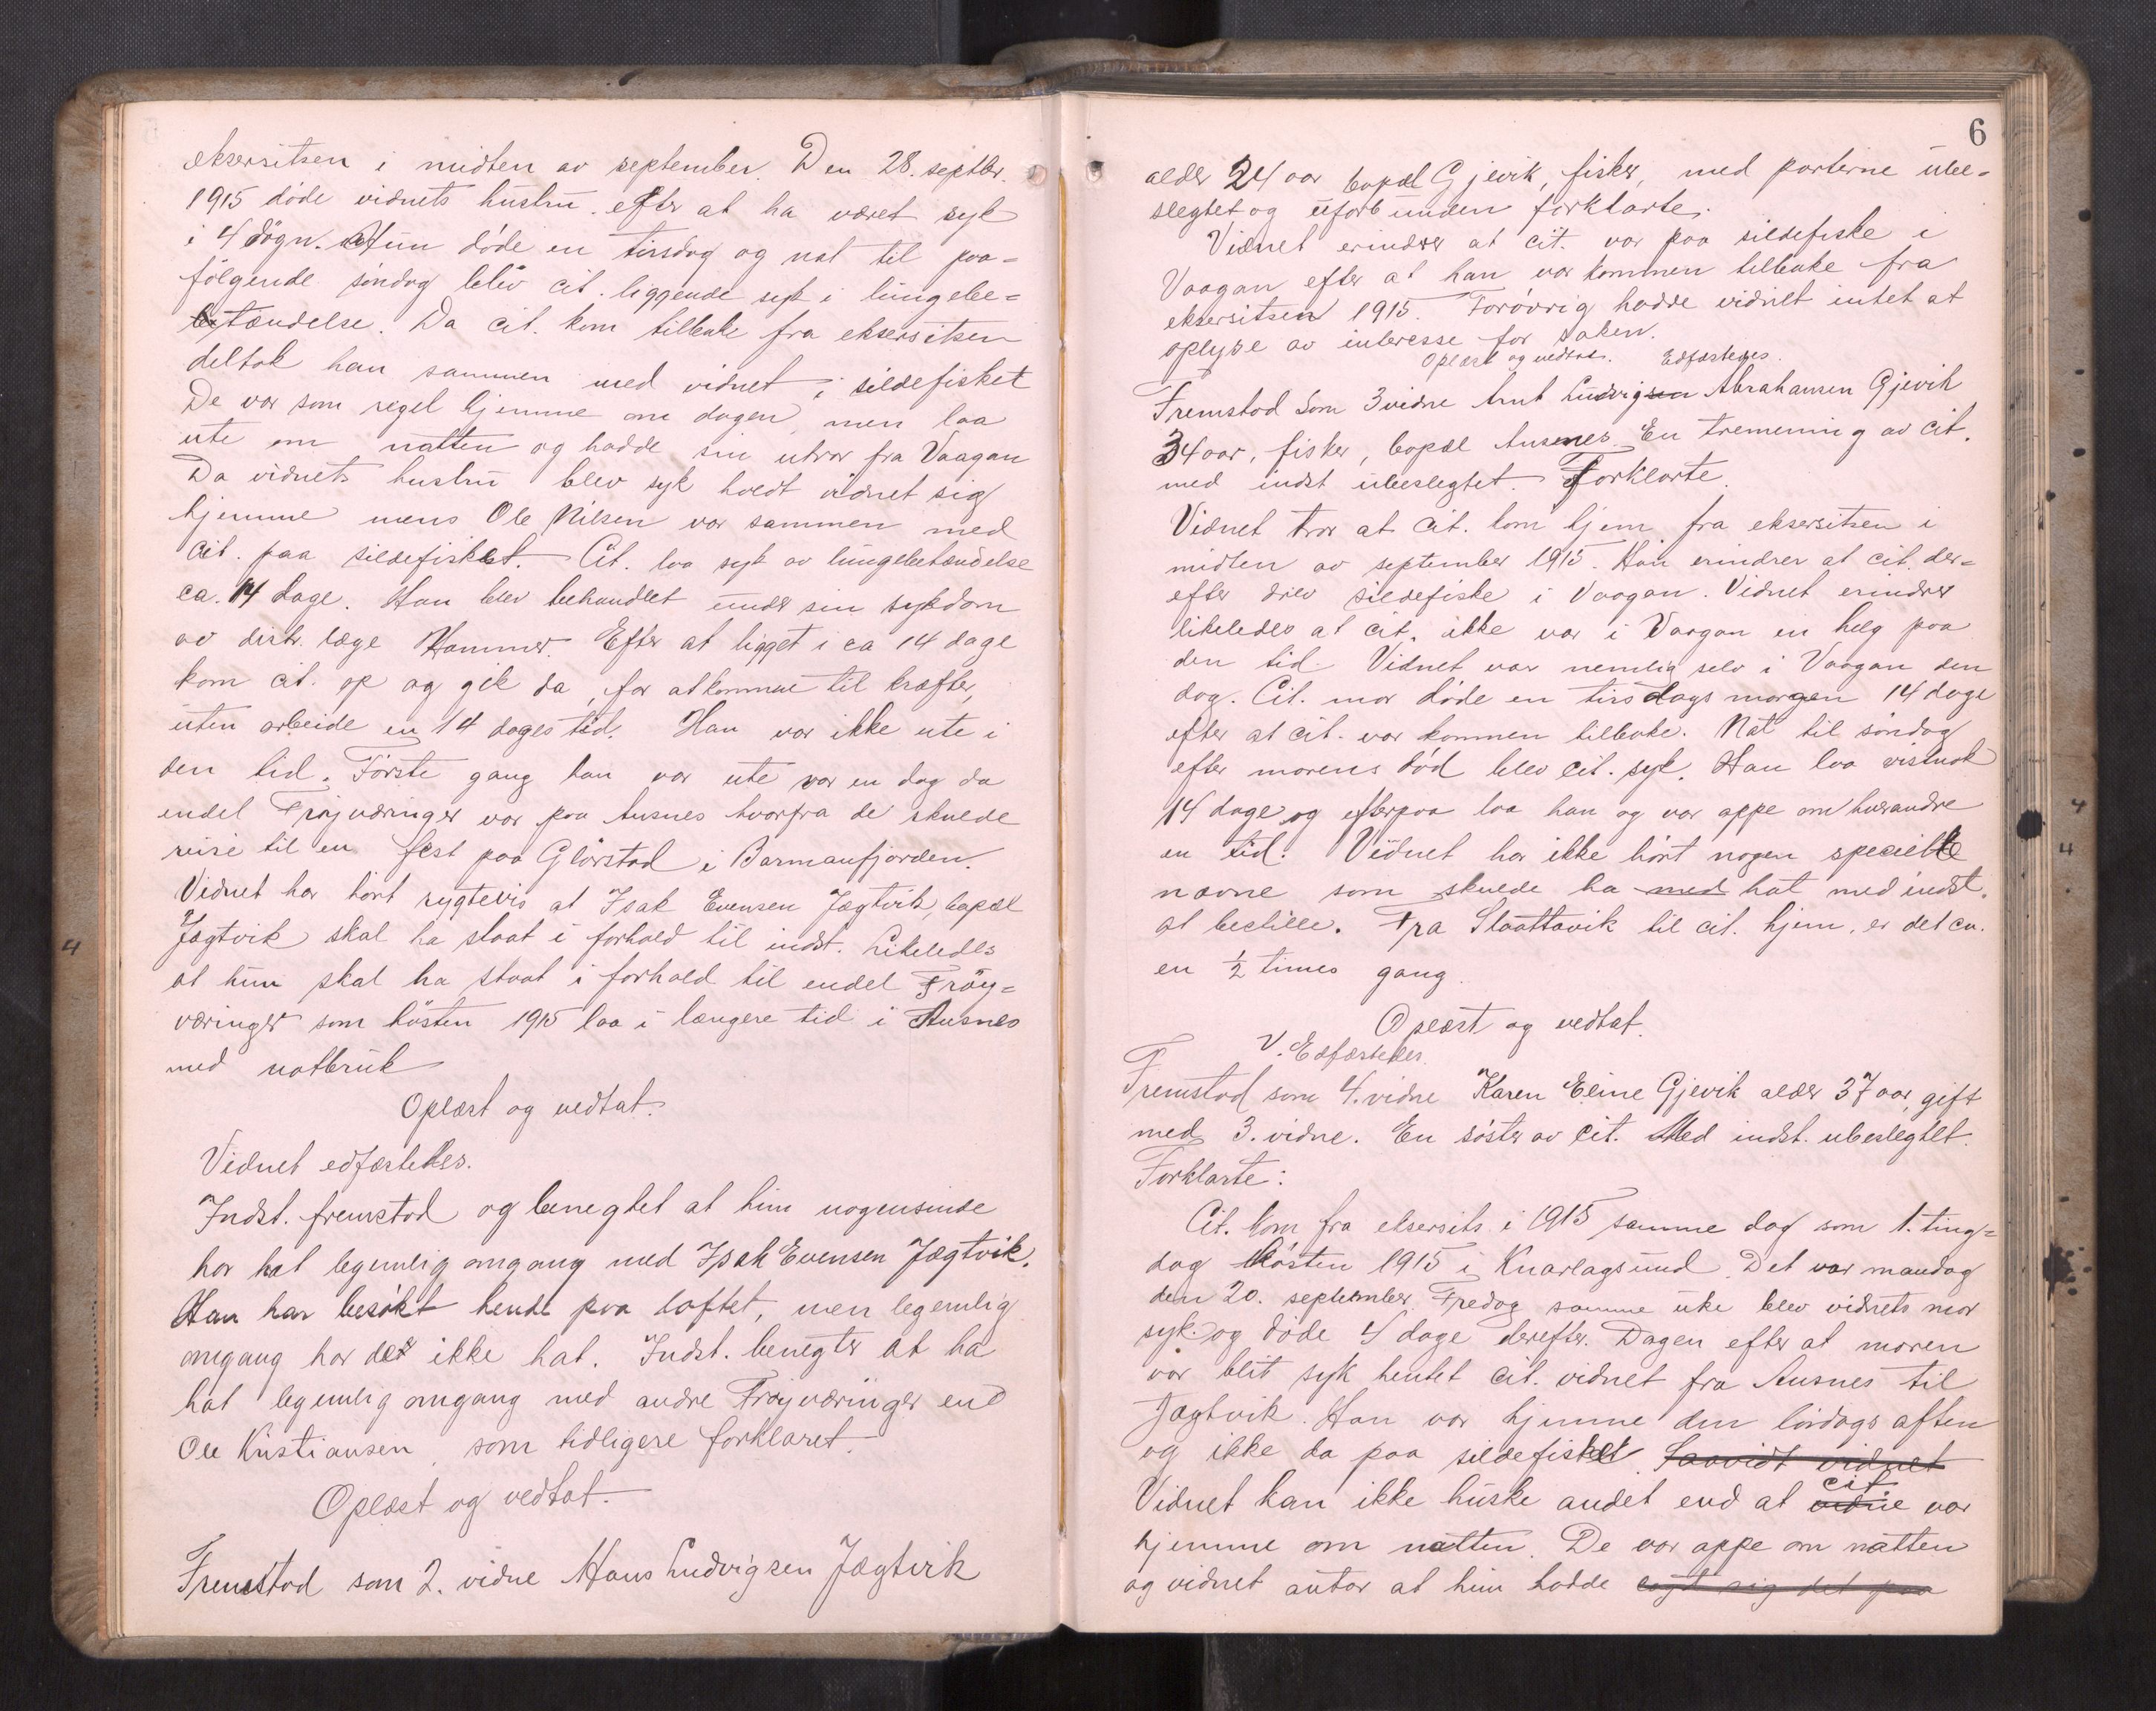 eksersitsen i midten av september. Den 28. septbr.
1915 døde vidnets hustru efter at ha været syk
i 4 døgn. Hun døde en tirsdag og nat til paa-
følgende søndag blev cit. liggende syk i lungebe-
tændelse. Da cit. kom tilbake fra eksersitsen
deltok han sammen med vidnet i sildefisket
De var som regel hjemme om dagen, men laa
ute om natten og hadde sin utror fra Vaagan
Da vidnets hustru blev syk holdt vidnet sig
hjemme mens Ole Nilsen var sammen med
cit. paa sildefisket. Cit. laa syk av lungebetændelse
ca. 14 dage. Han blev behandlet under sin sykdom
av distr. læge Hammer. Efter at ligget i ca 14 dage
kom cit. op og gik da, for at komme til kræfter,
uten arbeide en 14 dages tid. Han var ikke ute i
den tid. Første gang han var ute var en dag da
endel Frøyværinger var paa Ausnes hvorfra de skulde
reise til en fest paa Glørstad i Barmanfjorden.
Vidnet har hørt rygtevis at Isak Evensen Jægtvik, bopæl
Jægtvik skal ha staat i forhold til indst. Likeledes
at hun skal ha staat i forhold til endel Frøy-
væringer som høsten 1915 laa i længere tid i Ausnes
med notbruk
Oplæst og vedtat.
Vidnet edfæstedes.
Indst. fremstod og benegtet at hun nogensinde
har hat legemlig omgang med Isak Evensen Jægtvik.
Han har besøkt hende paa loftet, men legemlig
omgang har de ikke hat. Indst. benegter at ha
hat legemlig omgang med andre Frøyværinger end
Ole Kristiansen, som tidligere forklaret.
Oplæst og vedtat.
Fremstod som 2. vidne Hans Ludvigsen Jægtvik
6
alder 24 aar bopæl Gjevik, fisker, med parterne ube-
slegtet og uforbunden forklarte:
Vidnet erindrer at cit. var paa sildefiske i
Vaagan efter at han var kommen tilbake fra
eksersitsen 1915. Forøvrig hadde vidnet intet at
oplyse av interesse for saken.
Oplæst og vedtat. Edfæstedes.
Fremstod som 3 vidne Arnt Ludvigsen Abrahamsen Gjevik
34 aar, fisker, bopæl Ausnes. En tremening av cit.
med indst ubeslegtet. Forklarte.
Vidnet tror at cit. kom hjem fra eksersitsen i
midten av september 1915. Han erindrer at cit. der-
efter drev sildefiske i Vaagan. Vidnet erindrer
likeledes at cit. ikke var i Vaagan en helg paa
den tid. Vidnet var nemlig selv i Vaagan den
dag. Cit. mor døde en tirsdags morgen 14 dage
efter at cit. var kommen tilbake. Nat til søndag
efter morens død blev cit. syk. Han laa vistnok
14 dage og efterpaa laa han og var oppe om hverandre
en tid. Vidnet har ikke hørt nogen specielle
navne som skulde ha med hat med indst.
at bestille. Fra Slaattavik til cit. hjem, er det ca.
en ½ times gang.
Oplæst og vedtat.
V. Edfæstedes.
Fremstod som 4. vidne Karen Eline Gjevik alder 37 aar, gift
med 3. vidne. En søster av cit. Med indst. ubeslegtet.
Forklarte:
Cit. kom fra eksersits i 1915 samme dag som 1. ting-
dag høsten 1915 i Knarlagsund. Det var mandag
den 20. september. Fredag samme uke blev vidnets mor
syk og døde 4 dage derefter. Dagen efter at moren
var blit syk hentet cit. vidnet fra Ausnes til
Jægtvik. Han var hjemme den lørdags aften
og ikke da paa sildefisket. Saavidt vidnet
Vidnet kan ikke huske andet end at vidne cit var
hjemme om natten. De var oppe om natten
og vidnet antar at hun hadde sig det paa